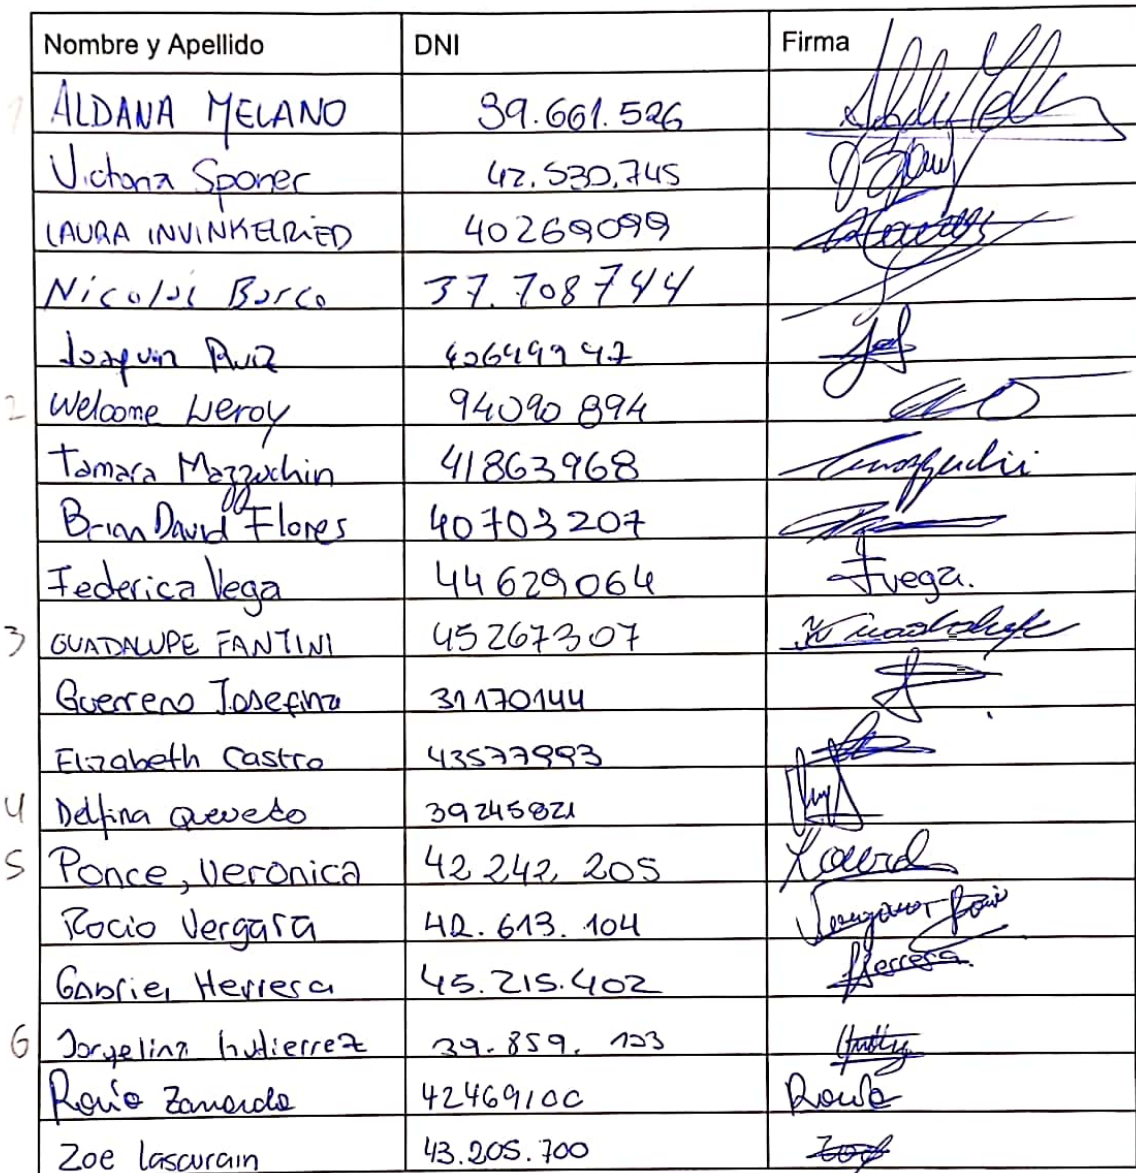 Nombre y Apellido DNI Firma
1 ALDANA MELANO 39.661.526
Victoria Sponer 42.530.745
LAURA INVINKELRIED 40269099
Nicolás Borco 37.708744
Joaquin Ruiz 42649947
2 Welcome Neroy 94090894
Tamara Mazzuchin 41863968
Brian David Flores 40703207
Federica Vega 44629064 Fvega.
3 GUADALUPE FANTINI 45267307
Guerrero Josefina 31170144
Elizabeth Castro 43577993
4 Delfina Quevedo 39245821
5 Ponce, Veronica 42.242.205
Rocio Vergara 42.613.104
Gabriel Herrera 45.215.402 Herrera.
6 Jorgelina Gutierrez 39.859.123
Rocío Zanardo 42469100 Rocío
Zoe Lascurain 43.205.700 Zoe